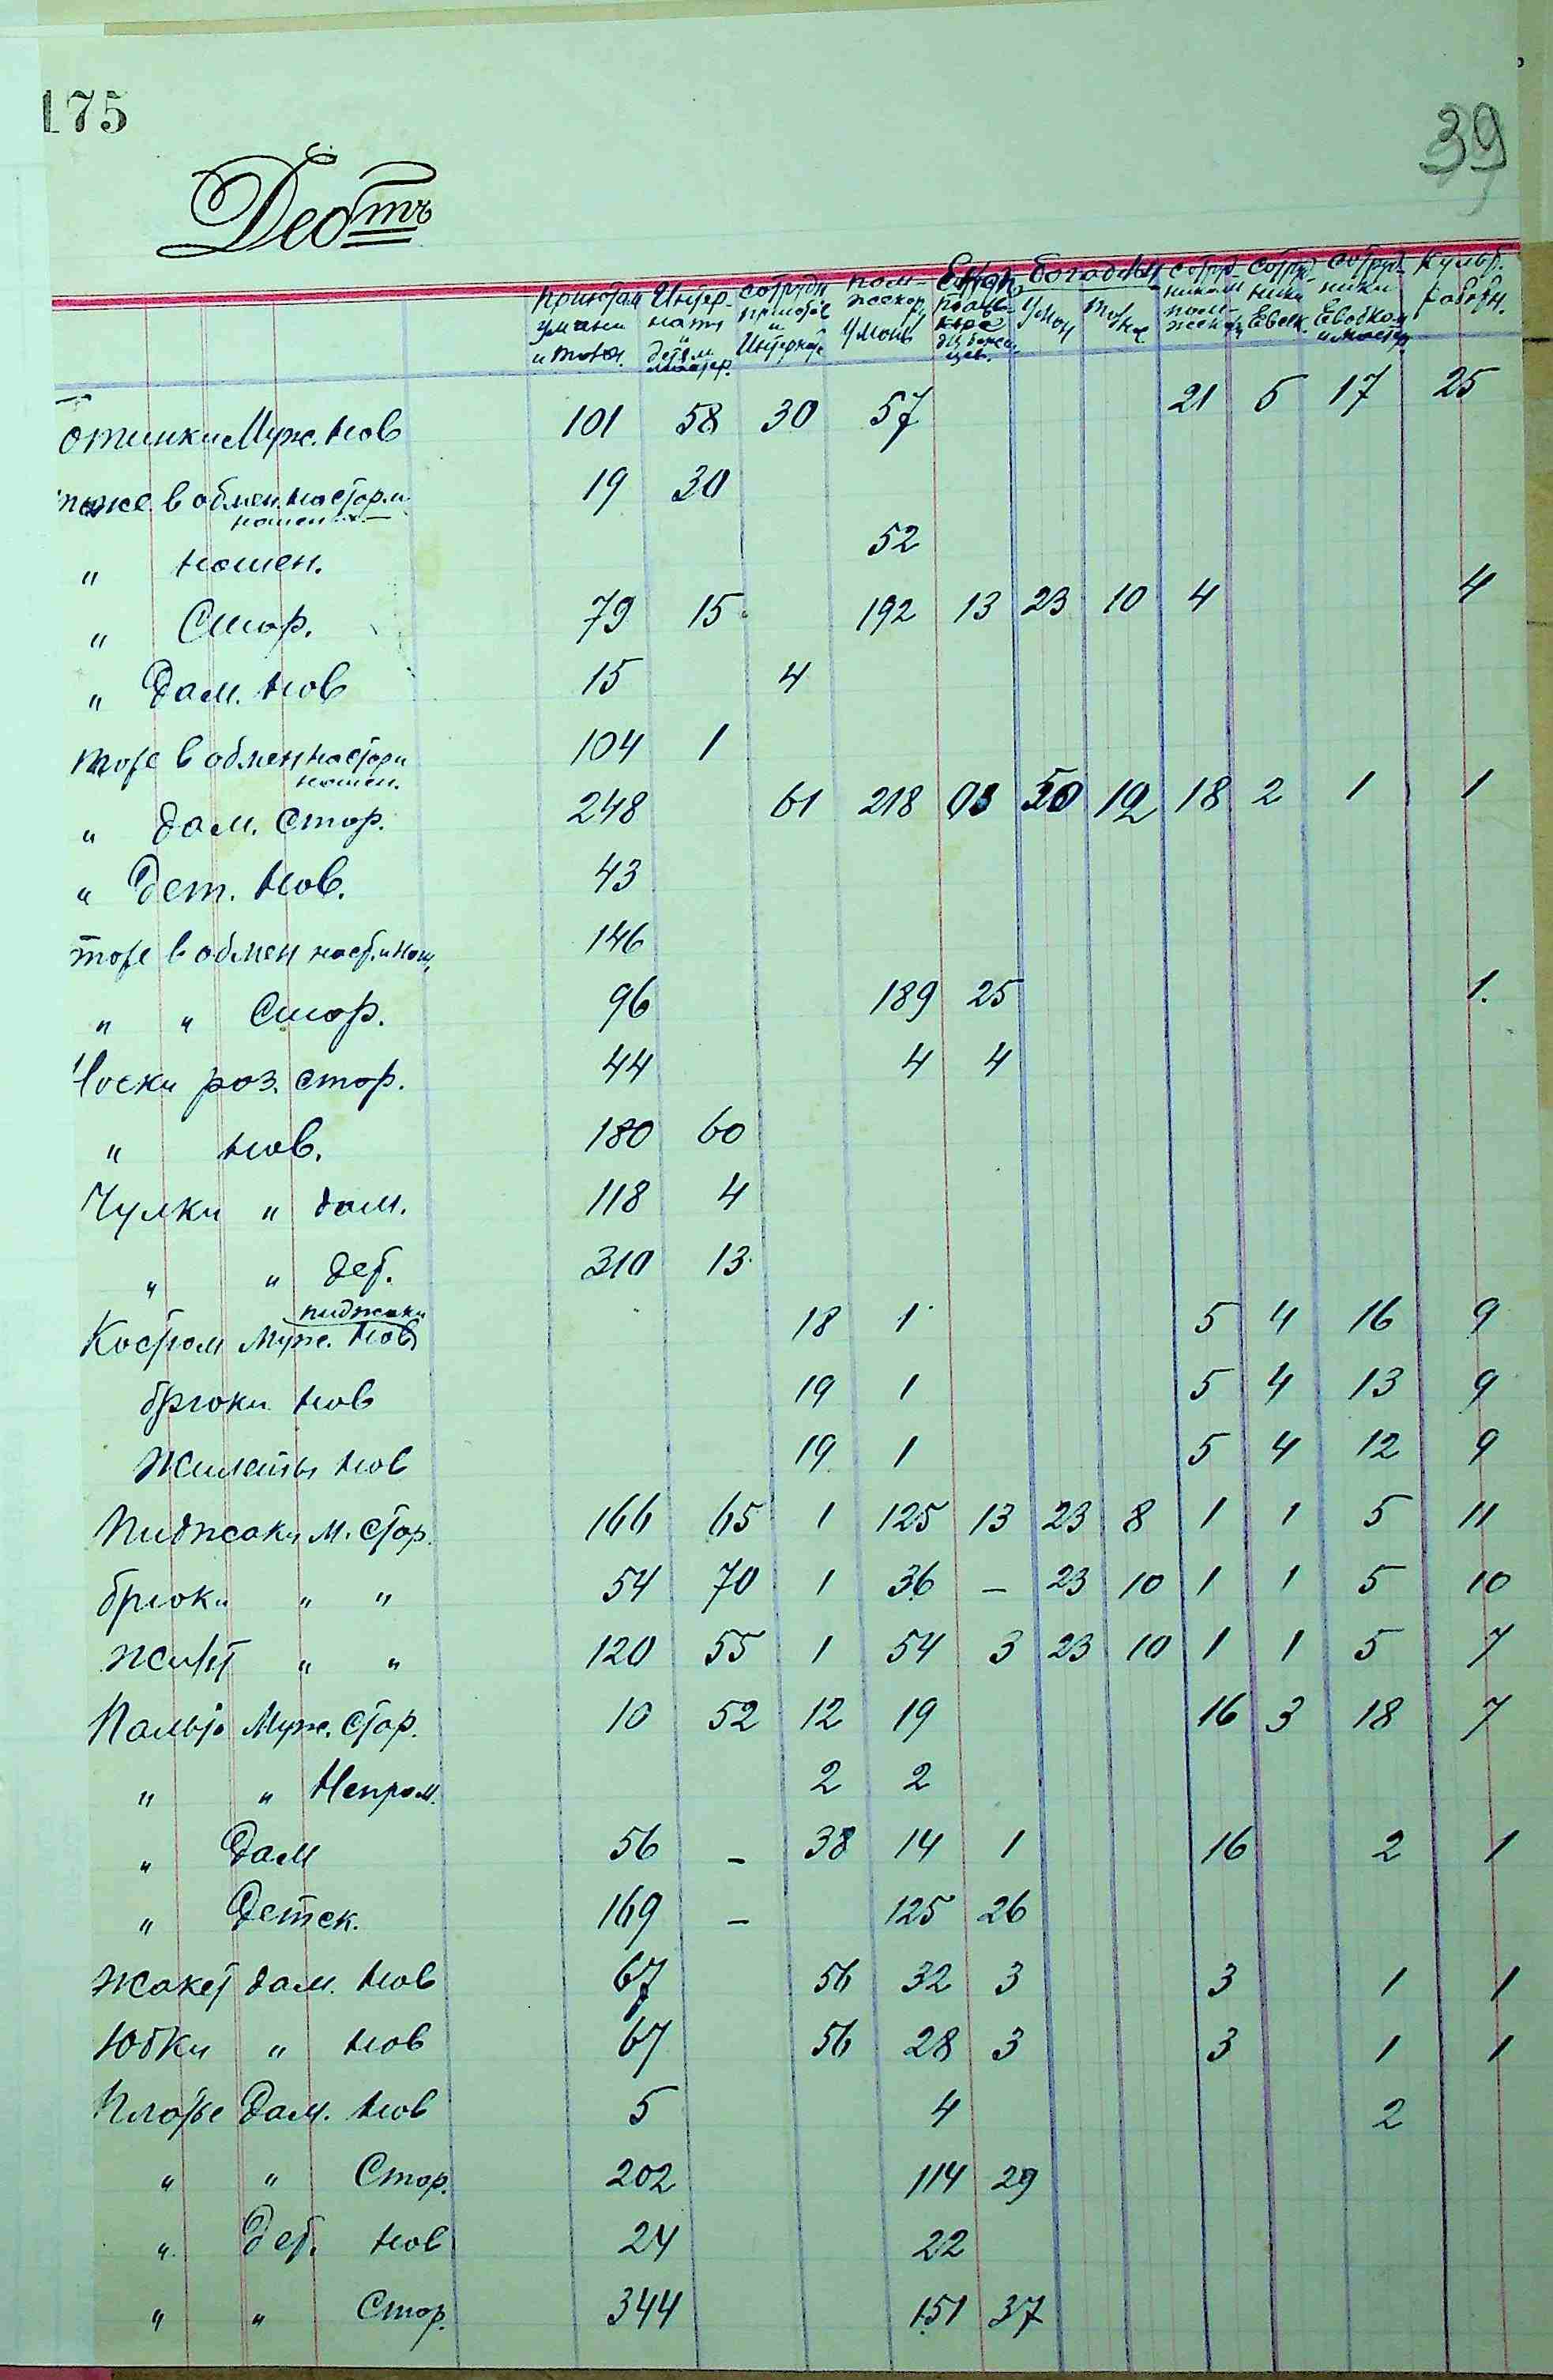 175
39
Дебтъ
Приютам Умани и Тальн. Интер-нати и детям интер. Сотрудн приютов и Интерната пом- Умань Богадельн Умань Сотруд- никам пом- Сотруд ники Евсек. Сотруд- ники Евобком и Культ. работн.
отинки Муж. нов 101 58 30 57 21 5 17 25
тоже в обмен. на стар. и ношен 19 30
" ношен. 52
" Стар. 79 15 192 13 23 10 4 4
" Дам. нов 15 4
тоже в обмен на стар и ношен. 104 1
" дам. Стар. 248 61 218 50 12 18 2 1 1
" Дет. нов. 43
тоже в обмен на ст. и нош. 146
" " Стар. 96 189 25 1.
Носки роз. стар. 44 4 4
" нов. 180 60
Чулки " дам. 118 4
" " дет. 310 13
Костюм Муж. нов пиджаки 18 1 5 4 16 9
брюки нов 19 1 5 4 13 9
жилеты нов 19 1 5 4 12 9
Пиджаки М. Стар. 166 65 1 125 13 23 8 1 1 5 11
брюки " " 54 70 1 36 – 23 10 1 1 5 10
жилет " " 120 55 1 54 3 23 10 1 1 5 7
Пальто Муж. Стар. 10 52 12 19 16 3 18 7
" " Непром. 2 2
" Дам 56 – 38 14 1 16 2 1
" Детск. 169 – 125 26
Жакет дам. нов 67 56 32 3 3 1 1
Юбки " нов 67 56 28 3 3 1 1
Платье Дам. нов 5 4 2
" " Стар. 202 114 29
" Дет. нов 24 22
" " Стар. 344 151 37